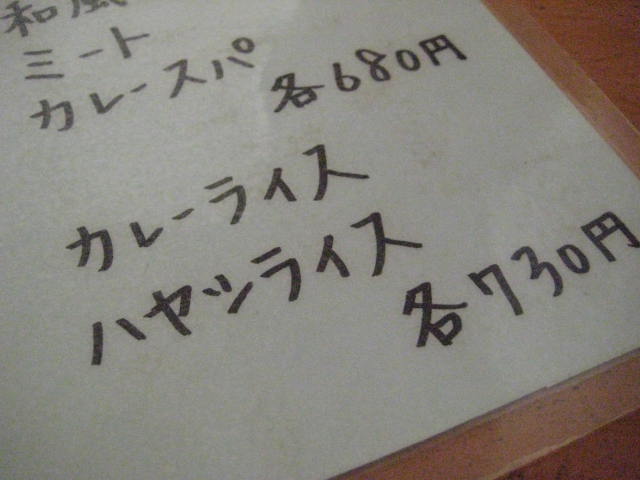 和風
ミート
カレースパ 各680円
カレーライス
ハヤシライス
各730円